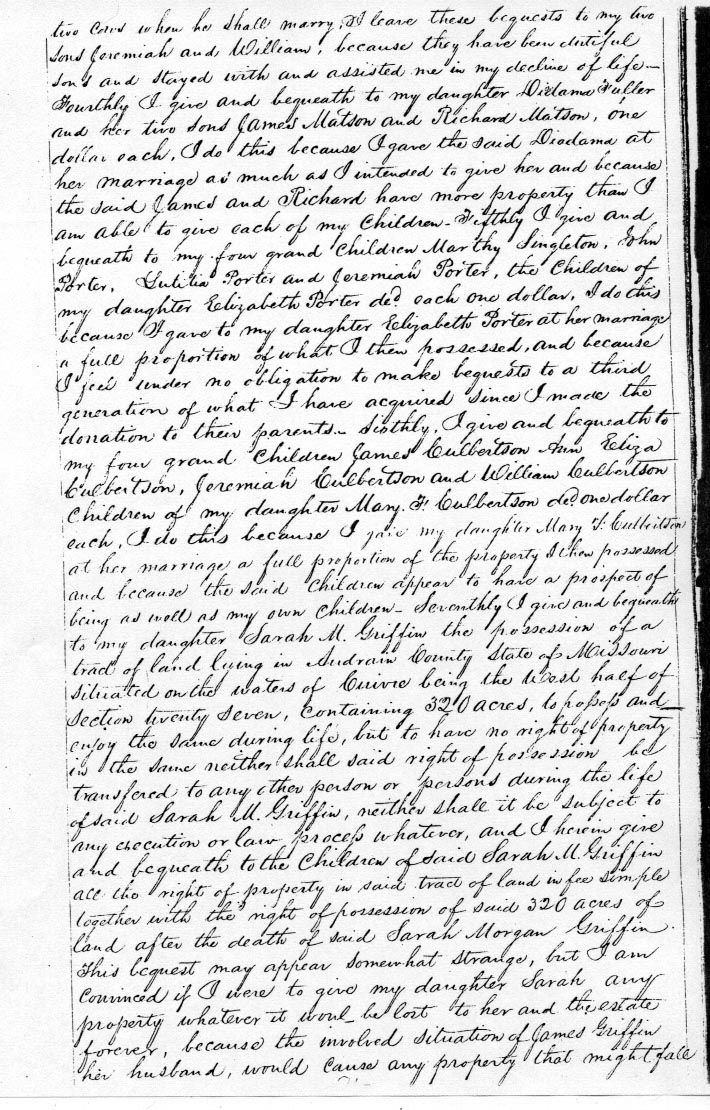 two cows when he shall marry, I leave these bequests to my two
sons Jeremiah and William, because they have been dutiful
sons and stayed with and assisted me in my decline of life —
Fourthly I give and bequeath to my daughter Diedama Fuller
and her two sons James Matson and Richard Matson, one
dollar each, I do this because I gave the said Diedama at
her marriage as much as I intended to give her and because
the said James and Richard have more property than I
am able to give each of my Children – Fifthly I give and
bequeath to my four grand Children Marthy Singleton, John
Porter, Lutitia Porter and Jeremiah Porter, the Children of
my daughter Elizabeth Porter decd. each one dollar, I do this
because I gave to my daughter Elizabeth Porter at her marriage
a full proportion of what I then possessed, and because
I feel under no obligation to make bequests to a third
generation of what I have acquired since I made the
donation to their parents – Sixthly, I give and bequeath to
my four grand Children James Culbertson Ann Eliza
Culbertson, Jeremiah Culbertson and William Culbertson
Children of my daughter Mary. F. Culbertson decd. one dollar
each, I do this because I gave my daughter Mary F. Culbertson
at her marriage a full proportion of the property I then possessed
and because the said Children appear to have a prospect of
being as well as my own Children – Seventhly I give and bequeath
to my daughter Sarah M. Griffin the possession of a
tract of land lying in Audrain County State of Missouri
situated on the waters of Cuivre being the West half of
Section twenty seven, Containing 320 acres, to possess and
enjoy the same during life, but to have no right of property
in the same neither shall said right of possession be
transfered to any other person or persons during the life
of said Sarah M. Griffin, neither shall it be subject to
any execution or law process whatever, and I herein give
and bequeath to the Children of said Sarah M. Griffin
all the right of property in said tract of land in fee simple
together with the right of possession of said 320 acres of
land after the death of said Sarah Morgan Griffin.
This bequest may appear somewhat strange, but I am
convinced if I were to give my daughter Sarah any
property whatever it woul be lost to her and the estate
forever, because the involved situation of James Griffin
her husband, would cause any property that might fall